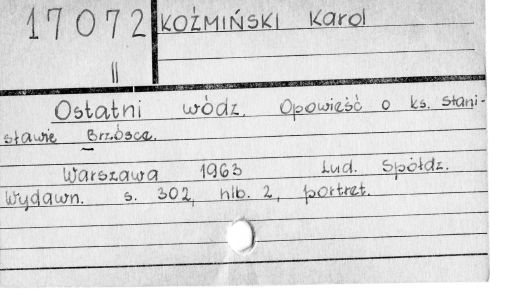 17072
II
KOŹMIŃSKI Karol
Ostatni wódz. Opowieść o ks. Stani-
sławie Brzósce.
Warszawa 1963 Lud. Spółdz.
Wydawn. s. 302, nlb. 2, portret.